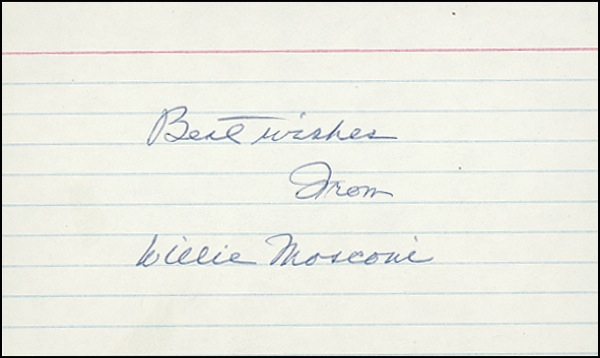 Best wishes
From
Willie Mosconi